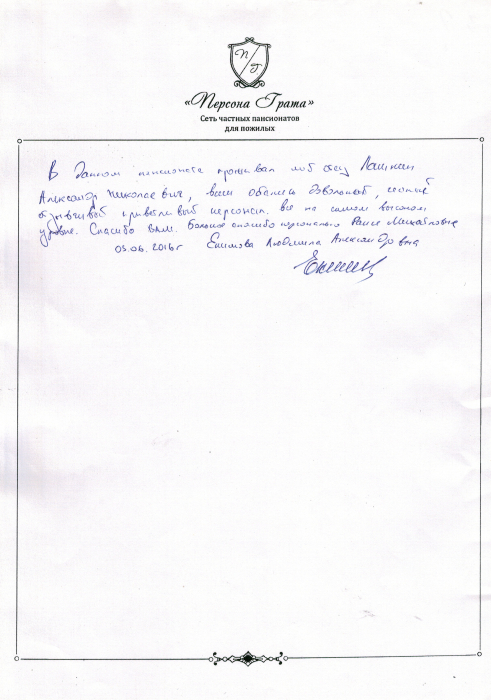 П
Г
«Персона Грата»
Сеть частных пансионатов
для пожилых
В данном пансионате проживал мой отец Лашкин
Александр Николаевич, всем остались довольный,
отзывчивый приветливый персонал. все на самом высоком
уровне. Спасибо вам. Большое спасибо персонально Раисе Михайловне
03.06.2016г Екимова Людмила Александровна